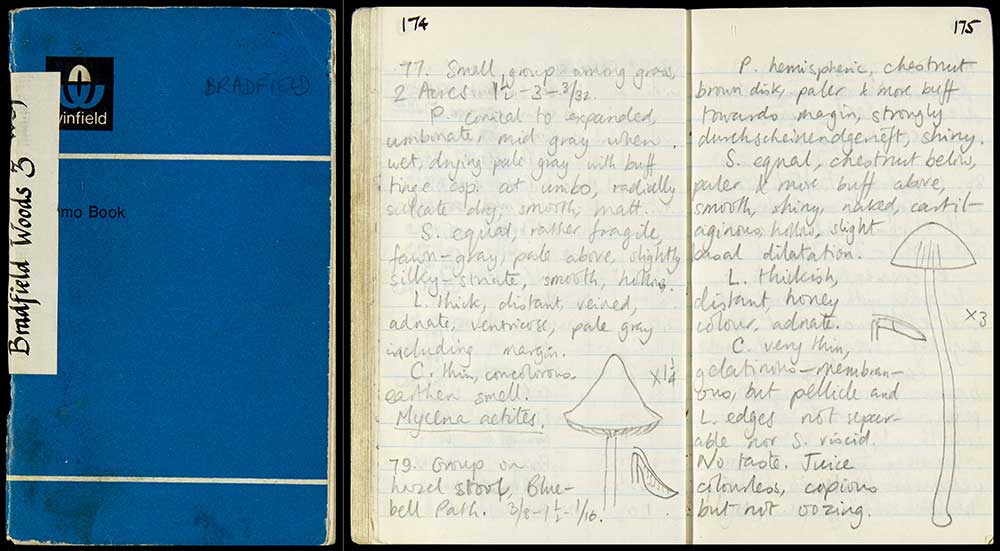 BRADFIELD
winfield
mo Book
Bradfield Woods 3
174
77. Small group among grass,
2 Acres 1½-3-3/32.
P. conical to expanded,
umbonate mid gray when
wet, drying pale gray with buff
tinge esp. at umbo, radially
sulcate dry, smooth, matt.
S. equal, rather fragile,
fawn-gray, pale above, slightly
silky-striate, smooth, hollow.
L. thick, distant, veined,
adnate, ventricose, pale gray
including margin.
C. thin, concolorous.
earthen smell.
Mycena aetites.
×1¼
79. Group on
hazel stool, Blue-
bell Path. 3/8-1½-1/16.
175
P. hemispheric, chestnut
brown disk, paler & more buff
towards margin, strongly
durchscheinendgerieft, shiny.
S. equal, chestnut below,
paler & more buff above,
smooth, shiny, naked, cartil-
aginous, hollow, slight
basal dilatation.
L. thickish,
distant, honey
colour, adnate.
×3
C. very thin,
gelatinous-membran-
ous, but pellicle and
L. edges not separ-
able nor S. viscid.
No taste. Juice
colourless, copious
but not oozing.